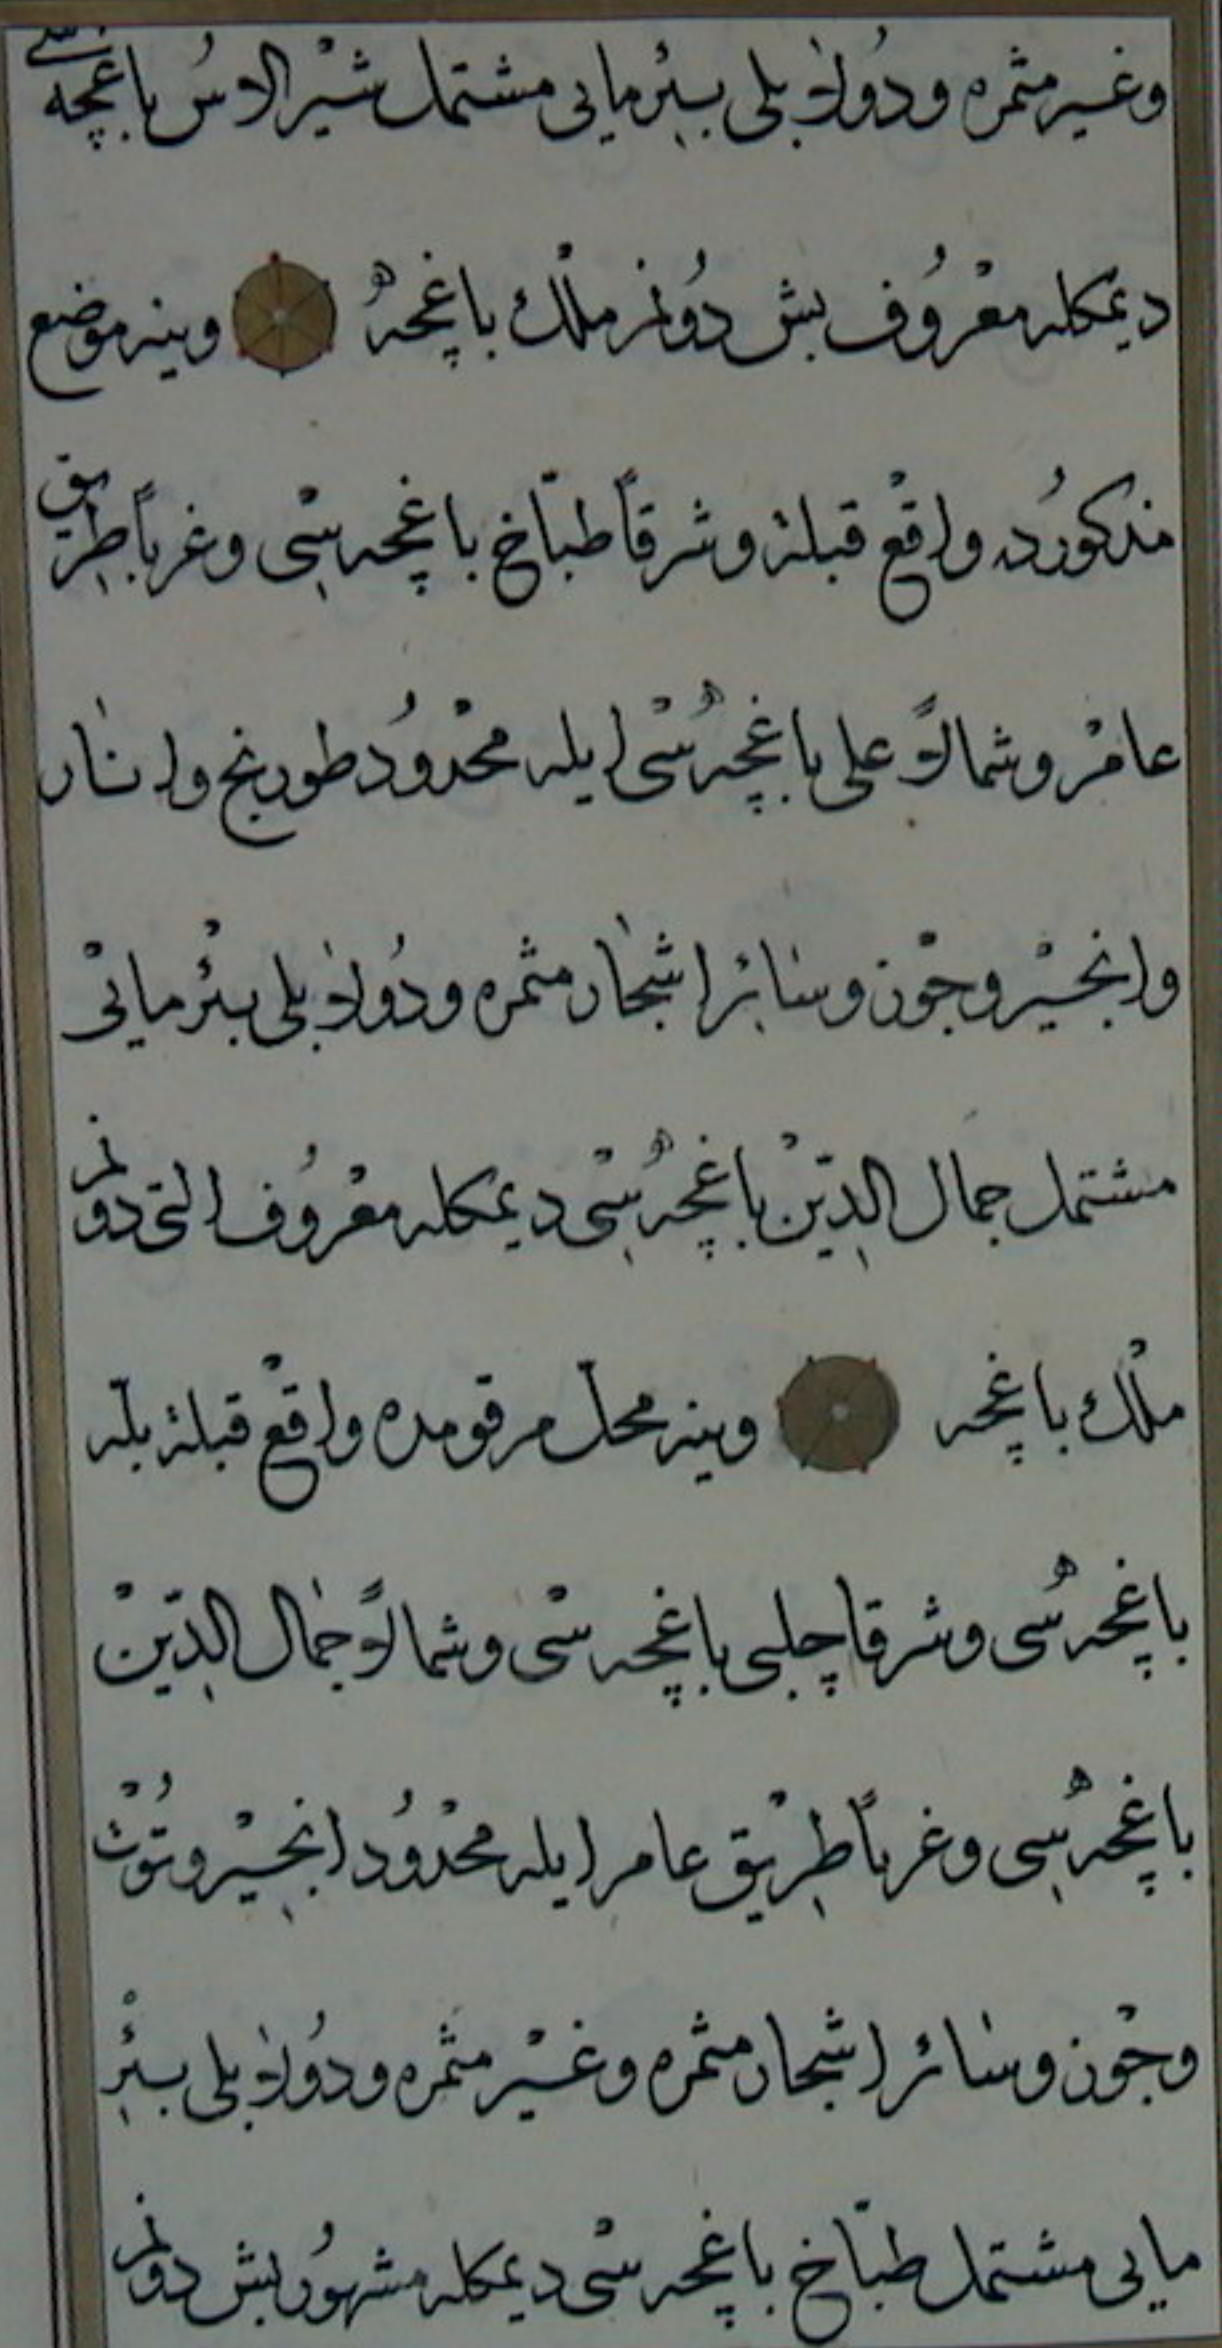 وغیر مثمره ودولابلی بئر مایی مشتمل شیرالاس باغچه سی
دیمکله معروف بش دونم ملك باغچه وینه موضع
مذکورده واقع قبلة وشرقاً طبّاخ باغچه سی وغرباً طریق
عام وشمالاً علی باغچه سی ایله محدود طورنج وانار
وانجیر وجوز وسائر اشجار مثمره ودولابلی بئر مائی
مشتمل جمال الدّین باغچه سی دیمکله معروف التی دونم
ملك باغچه وینه محلّ مرقومده واقع قبلة یلّه
باغچه سی وشرقا چلبی باغچه سی وشمالاً جمال الدّین
باغچه سی وغرباً طریق عام ایله محدود انجیر وتوت
وجوز وسائر اشجار مثمره وغیر مثمره ودولابلی بئر
مایی مشتمل طبّاخ باغچه سی دیمکله مشهور بش دونم